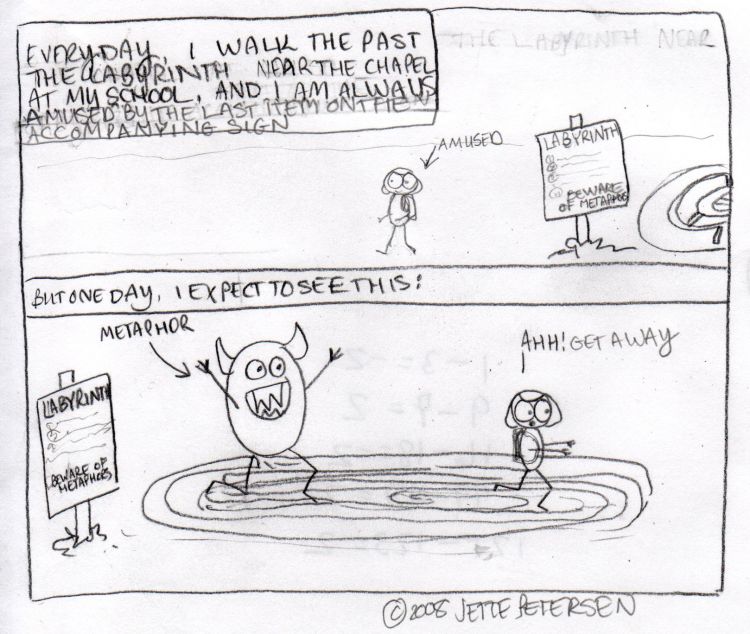 EVERYDAY, I WALK THE PAST
THE LABYRINTH NEAR THE CHAPEL
AT MY SCHOOL, AND I AM ALWAYS
AMUSED BY THE LAST ITEM ON THE
ACCOMPANYING SIGN
THE LABYRINTH NEAR
AMUSED
LABYRINTH
BEWARE
OF METAPHORS
BUT ONE DAY, I EXPECT TO SEE THIS:
METAPHOR
AHH! GET AWAY
LABYRINTH
BEWARE OF
METAPHORS
©2008 JETTE PETERSEN